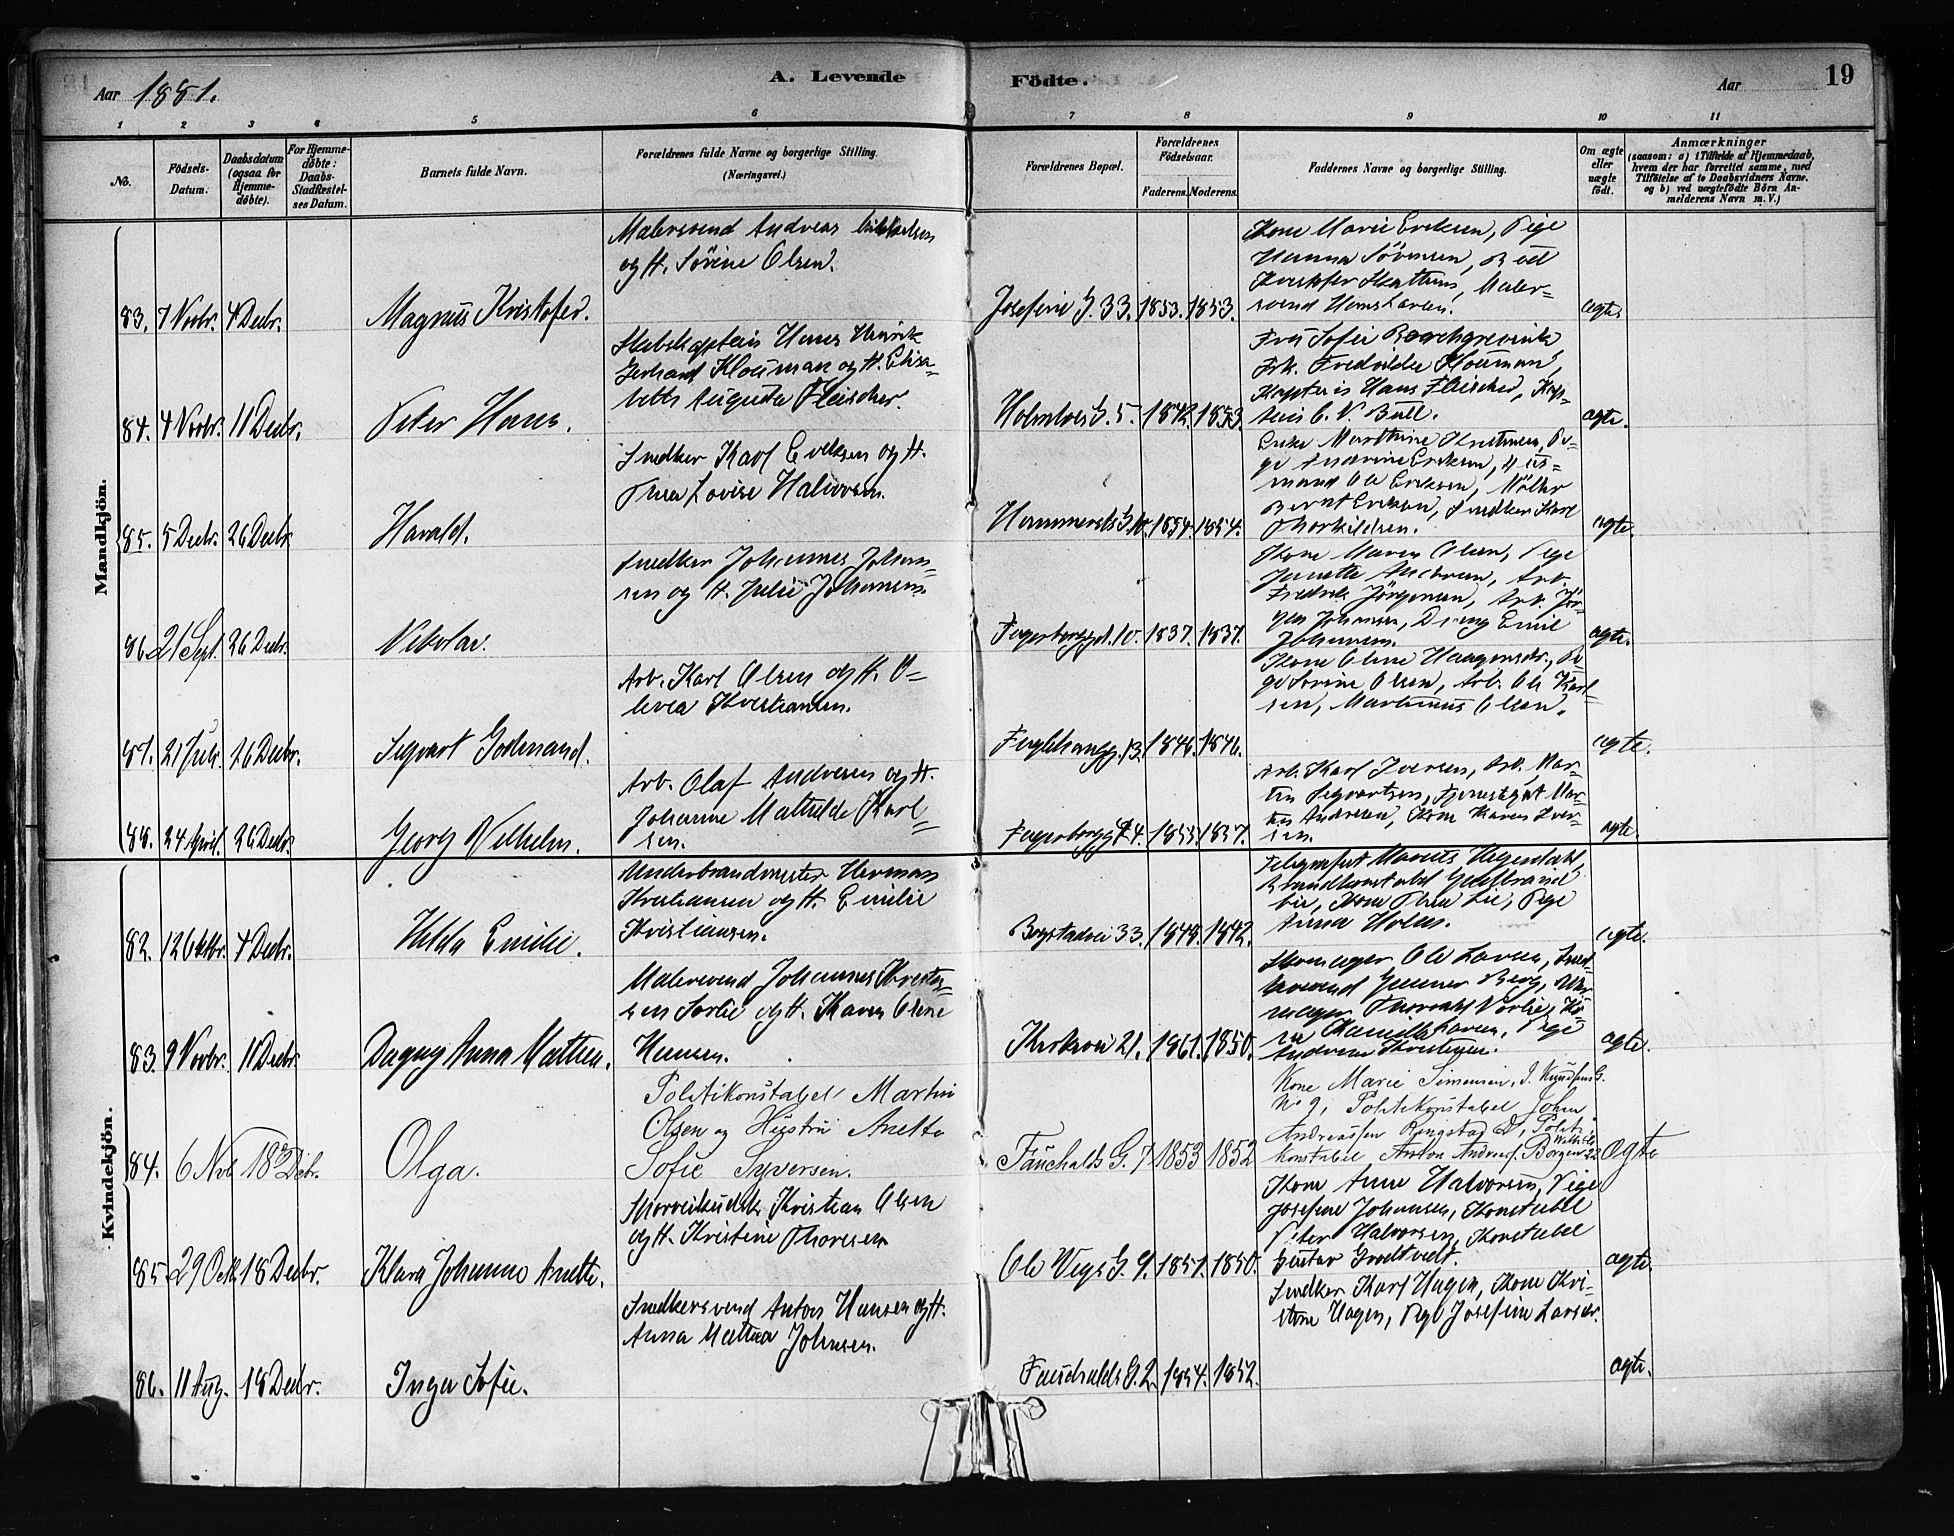 Aar 1881.
A. Levende
Födte.
Aar
19
1 2 3 4 5 6 7 8 9 10 11
No.
Födsels-
Datum.
Daabsdatum
(ogsaa for
Hjemme-
døbte).
For Hjemme-
døbte:
Daabs-
Stadfæstel-
ses Datum.
Barnets fulde Navn.
Forældrenes fulde Navne og borgerlige Stilling.
(Næringsvei.)
Forældrenes Bopæl.
Forældrenes
Födselsaar.
Faderens.
Moderens.
Faddernes Navne og borgerlige Stilling.
Om ægte
eller
uægte
födt.
Anmærkninger
(saasom: a) i Tilfælde af Hjemmedaab,
hvem der har forrettet samme, med
Tilföielse af to Daabsvidners Navne,
og b) ved uægtefödte Börn An-
melderens Navn m. V.)
Mandkjön.
83. 7 Novbr. 4 Decbr. Magnus Kristofer.
Malersvend Andreas
og H. Sørine Olsen.
Josefine G. 33. 1853. 1853.
Kone Marie Eriksen, Pige
Hanna Sörensen,
Kristofer Maler-
svend
ægte.
84. 4 Novbr. 11 Decbr. Peter Hans.
Stabskaptein Hans Henrik
Gerhard Klouman og H. Elisa-
beth Augusta Fleischer.
Holmboes G. 5. 1842. 1853.
Fru Sofie Borchgrevink
Frk. Fredrikke Klouman,
Kaptein Hans Fleischer, Kap-
tein C. V. Bull.
ægte.
85. 5 Decbr. 26 Decbr. Harald.
Snedker Karl Eriksen og H.
Thea Lovise Halvorsen.
Hammersts G. 10. 1854. 1854.
Enke Marthine Pi-
ge Andrine Eriksen, Hus-
mand Ole Eriksen, Möller
Bernt Eriksen, Snedker Karl
Thorkildsen.
ægte.
86. 21 Sept. 26 Decbr. Nikolai.
Snedker Johannes Johan-
sen og H. Julie Johannesen.
Fagerborggd. 10. 1837. 1837.
Kone Maren Olsen, Pige
Janette Andersen, Arb.
Fredrik Jörgensen, Arb. Jör-
gen Johansen, Dreng Emil
Johannesen.
ægte.
87. 21 Juli. 26 Decbr. Sigvart Godtmand.
Arb. Karl Olsen og H. O-
levea Kristiansen.
13. 1846. 1846.
Kone Oline Haagensdr., Pi-
ge Lovine Olsen, Arb. Ole Karl-
sen, Martinius Olsen.
ægte.
88. 24 April. 26 Decbr. Georg Vilhelm.
Arb. Olaf Andresen og H.
Johanne Mathilde Karl-
sen.
4. 1853. 1857.
Arb. Karl Iversen, Arb. Mar-
tin Sigvartsen, Tjenestepige Mar-
tha Andresen, Kone Karen Iver-
sen.
ægte.
Kvindekjön.
82. 12 Oktbr. 4 Decbr. Hilda Emilie.
Underbrandmester Herman
Kristiansen og H. Emilie
Kristiansen.
Bogstadvei 33. 1848. 1842.
Telegrafist
Brandkonstabel Guldbrand
Lie, Kone Thea Lie, Pige
Anna Holm.
ægte.
83. 9 Novbr. 11 Decbr. Dagny Anna Mathea.
Malersvend Johannes
sen Sorlie og H. Karen Oline
Hansen.
Kirkevei 21. 1861. 1850.
Skomager Ole Larsen, Sned-
kersvend Gunnar Berg,
mager Thorvald
Larsen, Pige
Andrea Kristensen.
ægte.
84. 6 Nvb. 18de Dcbr. Olga.
Politikonstabel Martin
Olsen og Hustru Anette
Sofie Syversen.
Fauchalds G. 7 1853 1852
Kone Marie Simensen, J. Knudsens G.
No 9, Politikonstabel Johan
Andreassen Ringstad D., Politi-
konstabel Anton Andreas. Borgen 22
ægte
85. 29 Oct. 18 Decbr. Klara Johanne Anette.
Sporveiskudsk Kristian Olsen
og H. Kristine Thoresen
Ole Vigs G. 9. 1851. 1850.
Kone Anne Halvorsen, Pige
Josefine Johansen, Konstabel
Peter Halvorsen, Konstabel
Gustav Grodtvedt.
ægte.
86. 11 Aug. 18 Decbr. Inga Sofie.
Snedkersvend Anton Hansen og H.
Anna Mathea Johnsen.
Fauchalds G. 2. 1854. 1852.
Snedker Karl Hagen, Kone Kri-
stine Hagen, Pige Josefine Larsdr.
ægte.